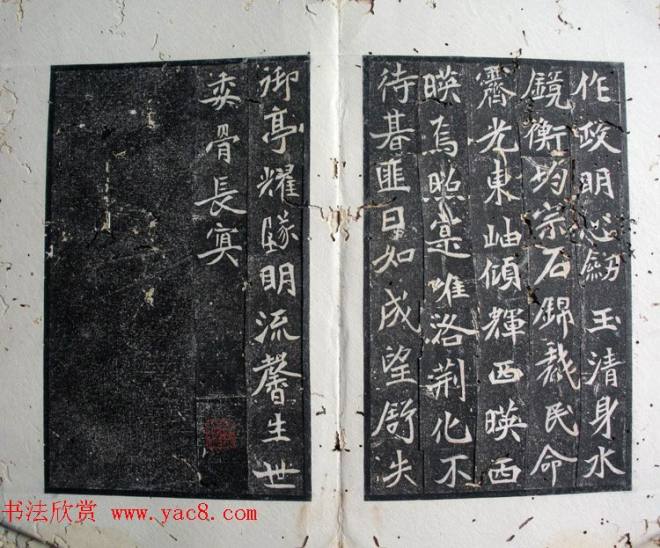 作政明心釼玉清身水
鏡衡均宗石錦裁民命
霽光東岫傾輝西暎西
暎焉照寔唯洛荊化不
待朞匪日如成望舒失
御亭耀墜明流馨生世
委骨長冥
书法欣赏 www.yac8.com